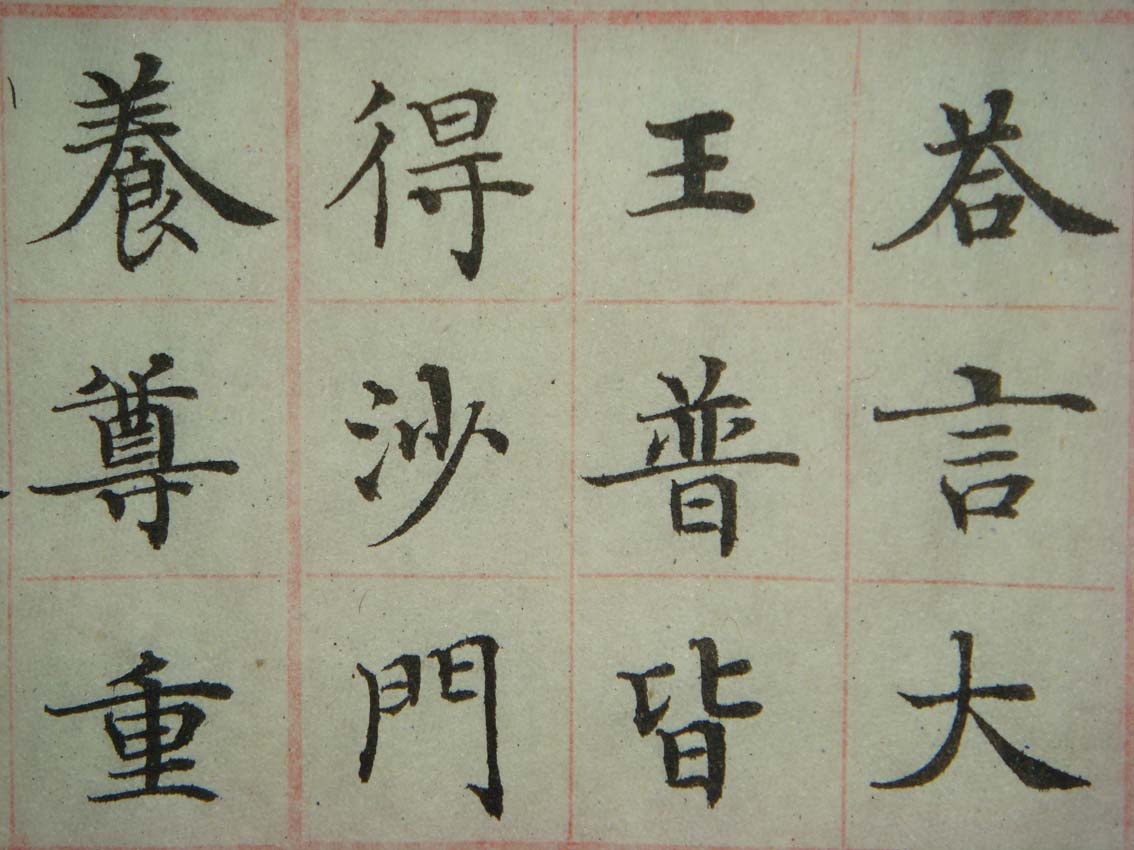 荅言大
王普皆
得沙門
養尊重